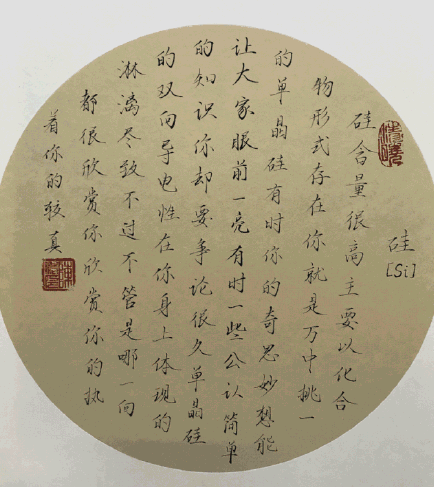 硅
[Si]
硅含量很高主要以化合
物形式存在你就是万中挑一
的单晶硅有时你的奇思妙想能
让大家眼前一亮有时一些公认简单
的知识你却要争论很久单晶硅
的双向导电性在你身上体现的
淋漓尽致不过不管是哪一向
都很欣赏你欣赏你的执
着你的较真